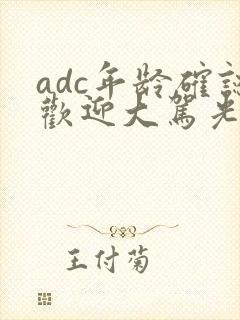 adc年龄確認
歡迎大駕光
王付菊